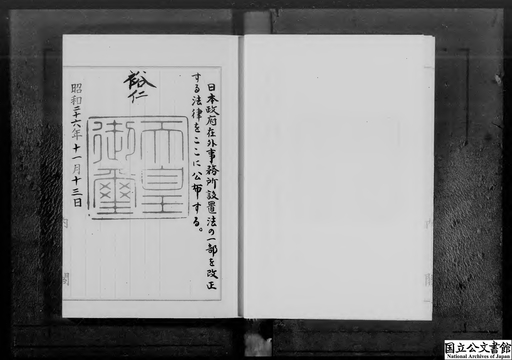 日本政府在外事務所設置法の一部を改正
する法律をここに公布する。
裕仁
天皇
御璽
昭和二十六年十一月十三日
内閣
内閣
国立公文書館
National Archives of Japan